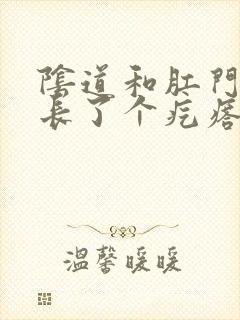 陰道和肛門
长了个疙瘩
溫馨暖暖